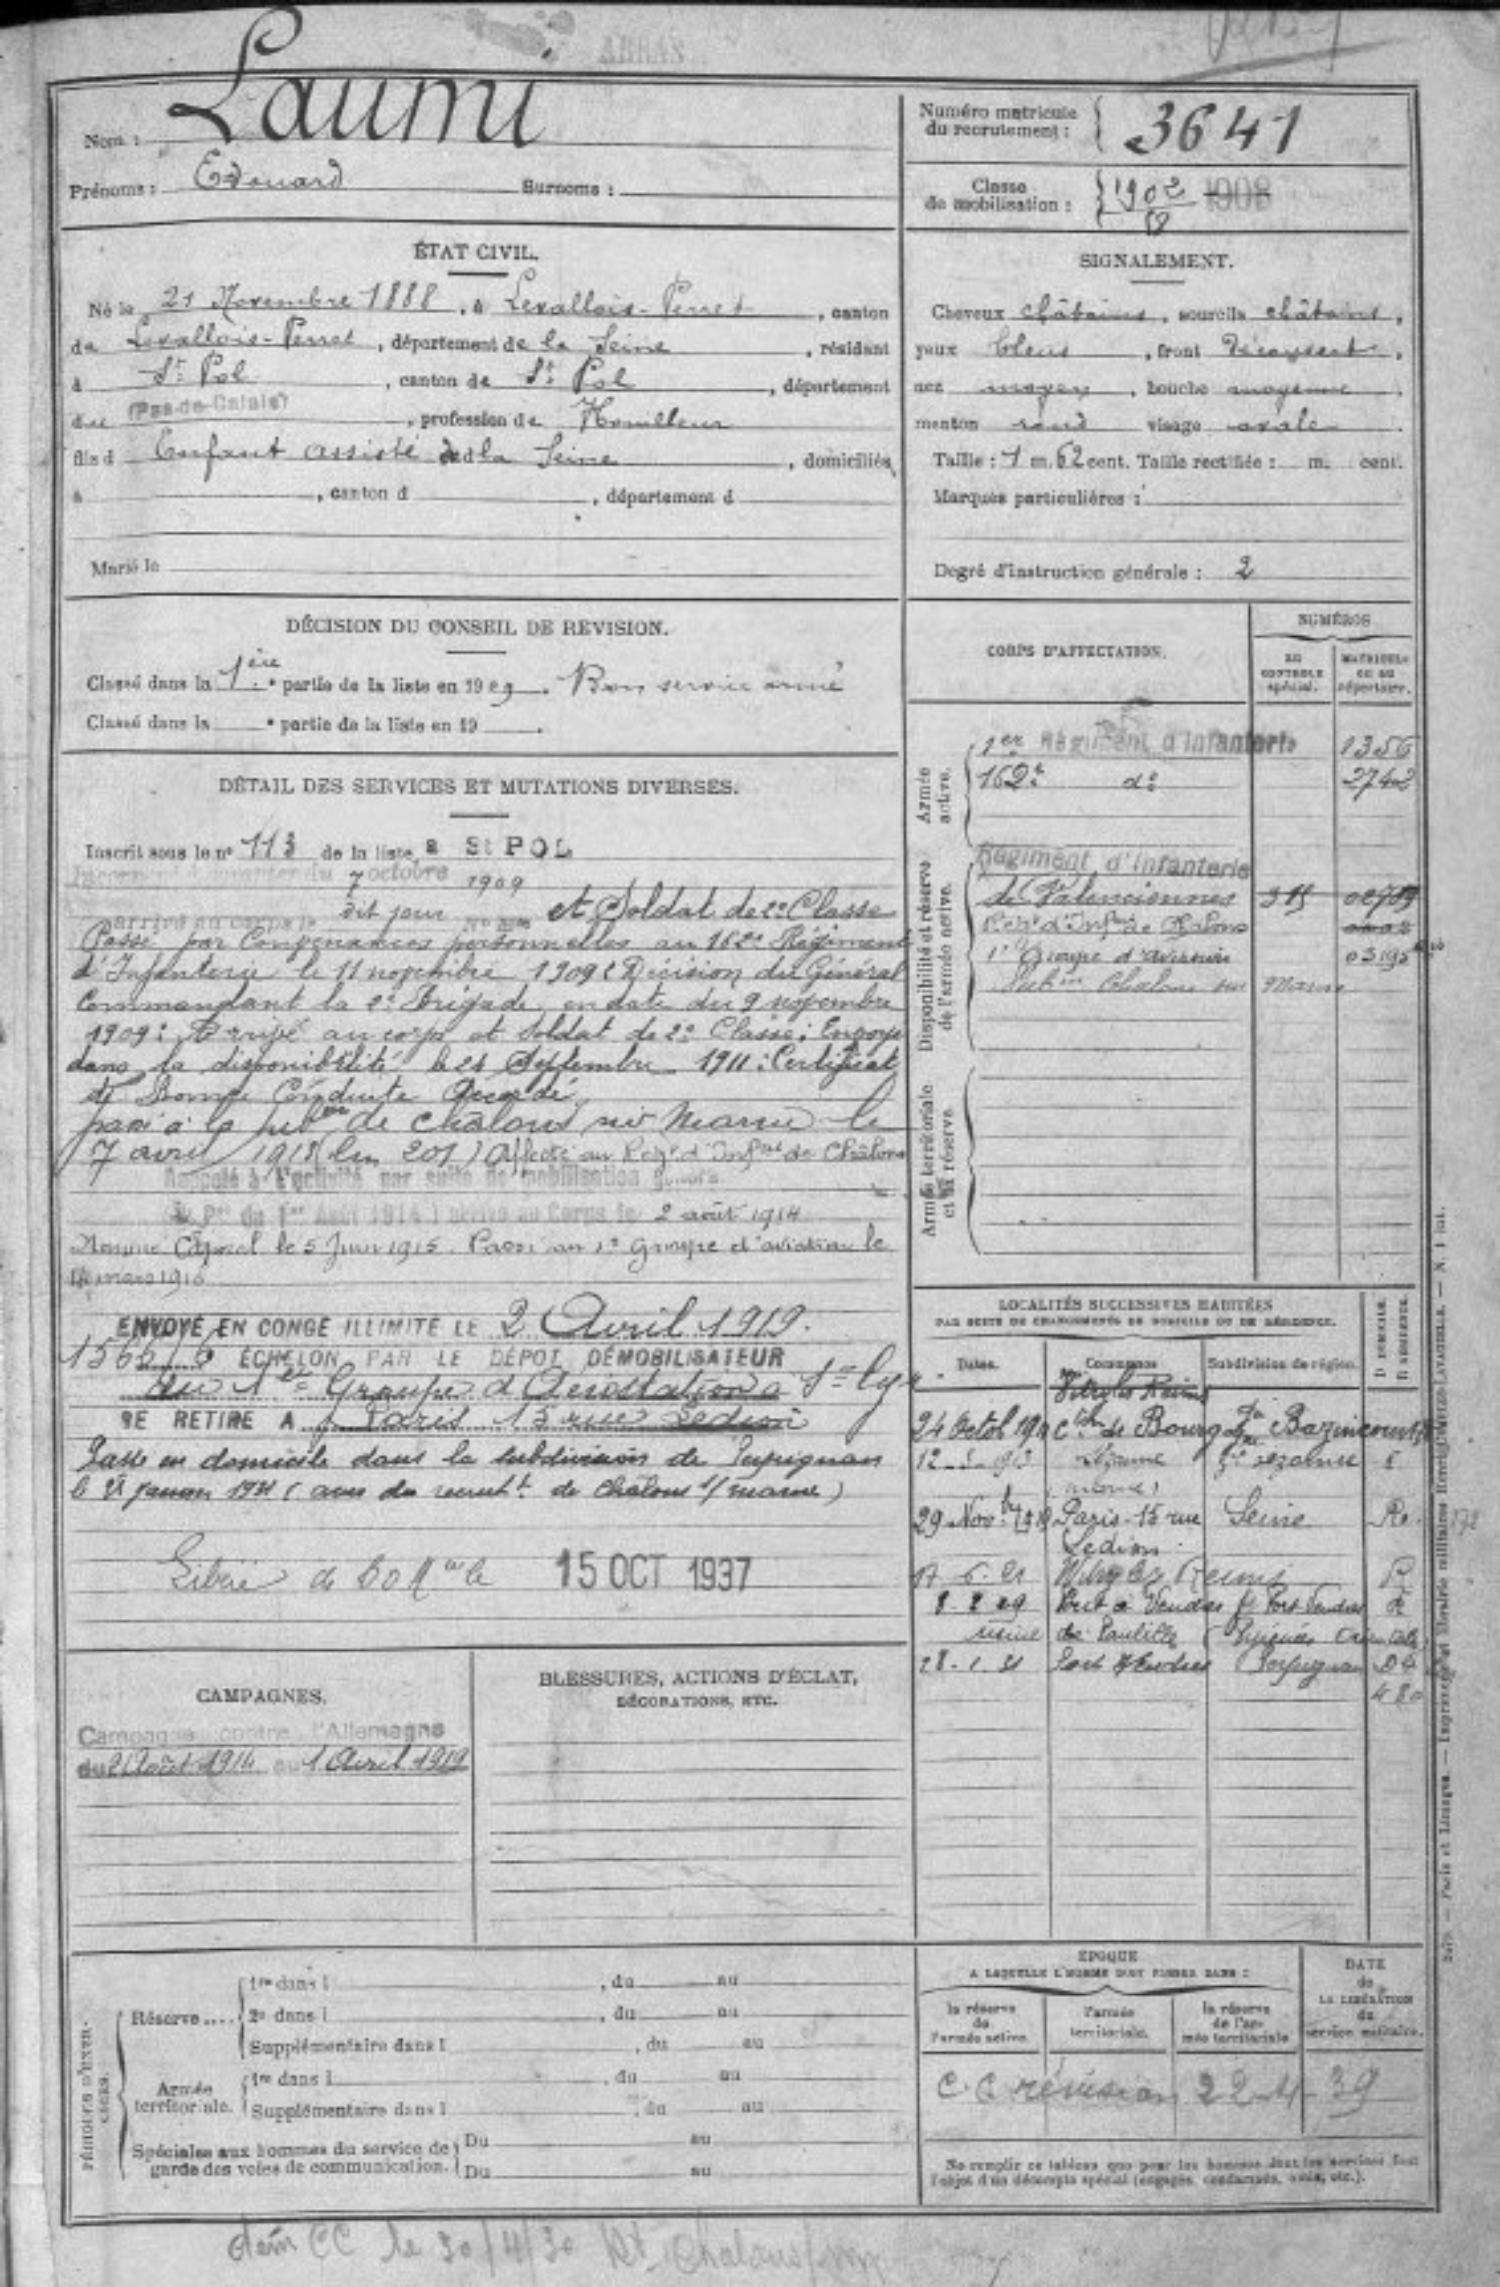 ARRAS
Nom : Laumi
Prénoms : Edouard Surnoms :
Numéro matricule du recrutement : 3641
Classe de mobilisation : 1902 1908
ÉTAT CIVIL.
Né le 21 Novembre 1888, à Levallois-Perret, canton
de Levallois-Perret, département de la Seine, résidant
à St Pol, canton de St Pol, département
du (Pas-de-Calais), profession de Houilleur
fils d Enfant assisté de la Seine, domiciliés
à , canton d , département d
Marié le
SIGNALEMENT.
Cheveux châtains, sourcils châtains,
yeux bleus, front Découvert,
nez moyen, bouche moyenne
menton rond visage ovale.
Taille : 1 m. 62 cent. Taille rectifiée : m. cent.
Marques particulières :
Degré d'instruction générale : 2
DÉCISION DU CONSEIL DE REVISION.
Classé dans la 1ère partie de la liste en 1909. Bon service armé
Classé dans la e partie de la liste en 19 .
DÉTAIL DES SERVICES ET MUTATIONS DIVERSES.
Inscrit sous le n° 113 de la liste à St POL
du 7 octobre 1909
arrivé au corps le dit jour et Soldat de 2e Classe
Passé par Convenances personnelles au 162e Régiment
d'Infanterie le 11 novembre 1909 (Décision du Général
Commandant la 2e Brigade en date du 9 novembre
1909: Arrivé au corps et soldat de 2e Classe; Envoyé
dans la disponibilité le 24 Septembre 1911: Certificat
de Bonne Conduite Accordé
passé à la subon de Chalons sur Marne le
7 avril 1913 (bin 201) Affecté au Regt d'Infie de Châlons
Rappelé à l'activité par suite de mobilisation
(D. Pt du 1er Août 1914) arrivé au Corps le 2 août 1914
Nommé Caporal le 5 Juin 1915. Passé au 1er Groupe d'aviation le
14 mars 1916
ENVOYÉ EN CONGÉ ILLIMITÉ LE 2 Avril 1919.
ÉCHELON PAR LE DÉPOT DÉMOBILISATEUR
du 1er Groupe d'Aérostation à St Cyr
SE RETIRE A Paris 15 rue Ledion
Passe en domicile dans la subdivision de Perpignan
le 28 janvier 1931 (avis du recrutt de Chalons s/marne)
Libéré de 15 OCT 1937
CORPS D'AFFECTATION.
NUMÉROS
DU CONTROLE spécial.
MATRICULE OU AU répertoire.
Armée active.
1er Régiment d'Infanterie 1356
162e do 2742
Disponibilité et réserve de l'armée active.
Régiment d'Infanterie
de Valenciennes 315 02709
Regt d'Infie de Chalons
1er Groupe d'aviation 03195
Subon Chalons sur Marne
Armée territoriale et sa réserve.
LOCALITÉS SUCCESSIVES HABITÉES
PAR SUITE DE CHANGEMENTS DE DOMICILE OU DE RÉSIDENCE.
Dates. Commune Subdivision de région. D DOMICILE. R RÉSIDENCE.
Vitry les Reims
24 Octob 1911 cton de Bourgogne Bazincourt
12-5-913 Sézanne Sézanne
(marne)
29 Novbre 1919 Paris-15 rue Seine Re.
Ledion.
Witry les Reims
8.2.29 Port à Vendres Port Vendres R
usine de Paulille (Pyrénées Orientales)
28.1.31 Port Vendres Perpignan D
CAMPAGNES.
Campagne contre l'Allemagne
du 2 Août 1914 au 1 Avril 1919
BLESSURES, ACTIONS D'ÉCLAT,
DÉCORATIONS, ETC.
PÉRIODES D'EXERCICES.
Réserve....
1re dans l , du au
2e dans l , du au
Supplémentaire dans l , du au
Armée territoriale.
1re dans l , du au
Supplémentaire dans l , du au
Spéciales aux hommes du service de garde des voies de communication.
Du au
Du au
ÉPOQUE
A LAQUELLE L'HOMME DOIT PASSER DANS :
la réserve de l'armée active.
l'armée territoriale.
la réserve de l'armée territoriale
DATE de LA LIBÉRATION du service militaire.
C.C révision 22-4-39
Ne remplir ce tableau que pour les hommes dont les services font
l'objet d'un décompte spécial (engagés, condamnés, omis, etc.).
dem CC le 30/4/30 Rt Chalons/